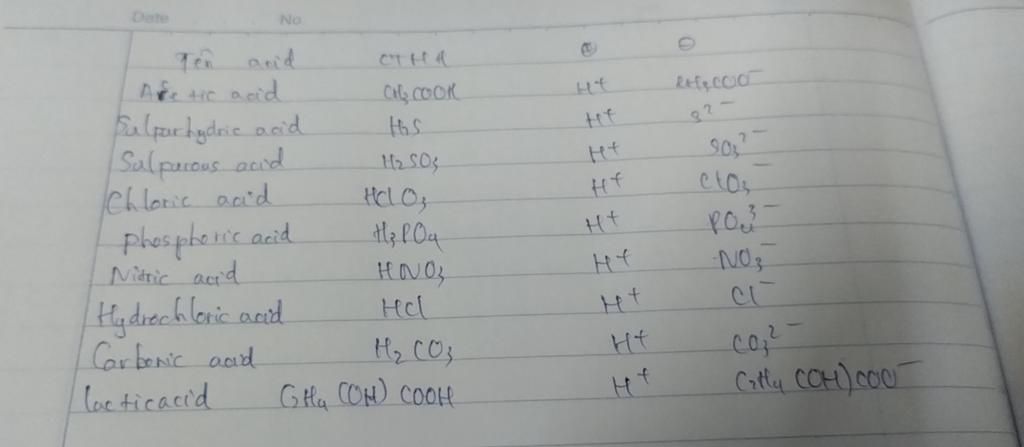 Date No
Tên acid CTHH ⊕ ⊖
Acetic acid CH₃COOH H⁺ CH₃COO⁻
Sulpurhydric acid H₂S H⁺ S²⁻
Sulpurous acid H₂SO₃ H⁺ SO₃²⁻
Chloric acid HClO₃ H⁺ ClO₃⁻
phosphoric acid H₃PO₄ H⁺ PO₄³⁻
Nitric acid HNO₃ H⁺ NO₃⁻
Hydrochloric acid HCl H⁺ Cl⁻
Carbonic acid H₂CO₃ H⁺ CO₃²⁻
lactic acid C₂H₄(OH)COOH H⁺ C₂H₄(OH)COO⁻